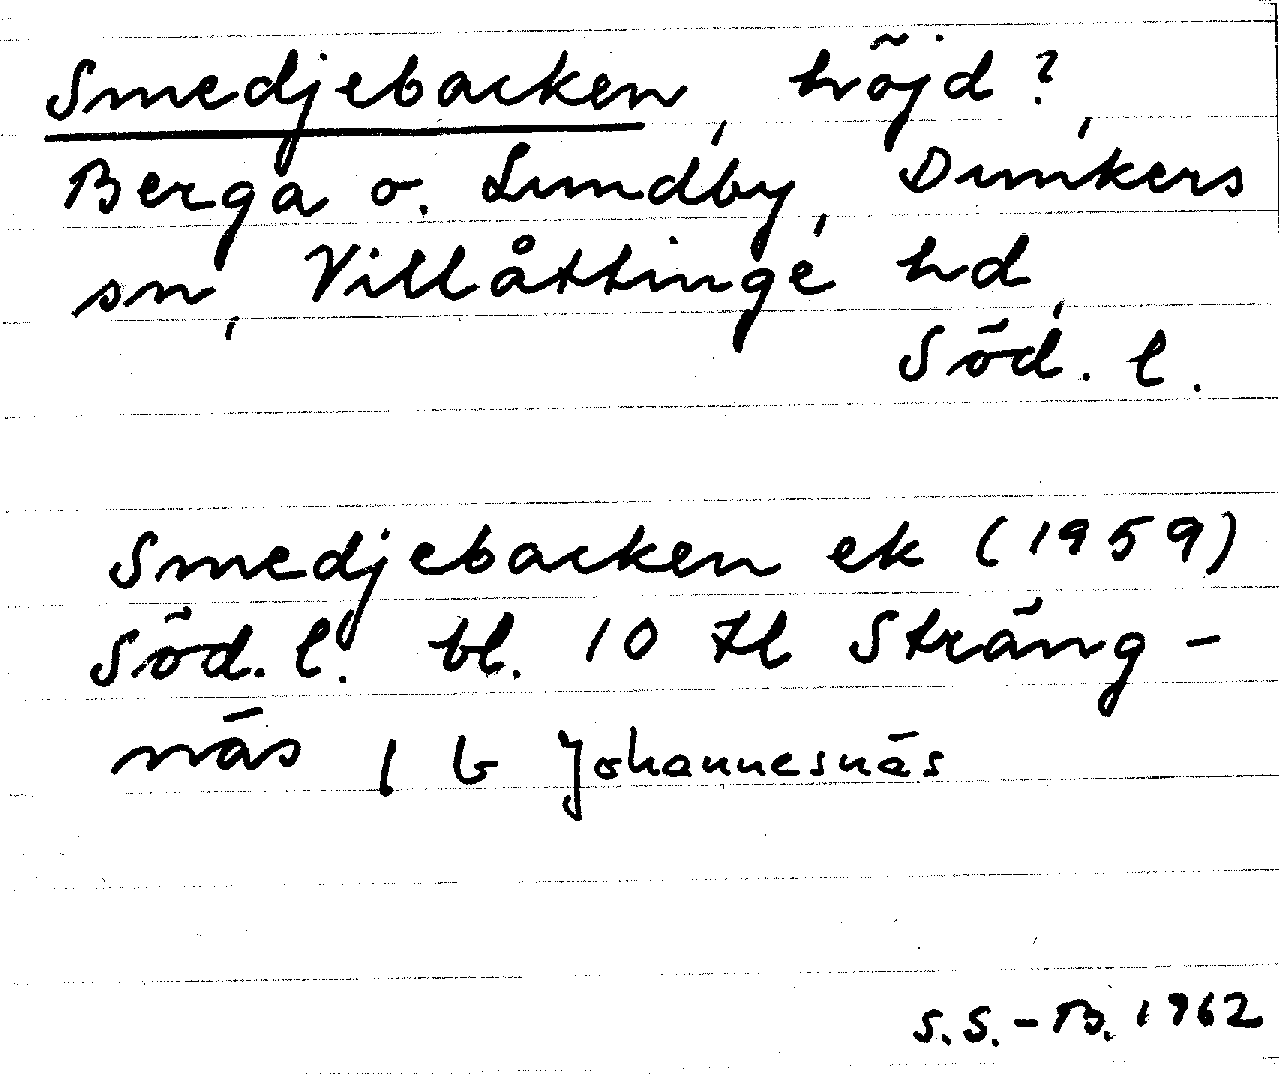 Smedjebacken, höjd?,
Berga o. Lundby, Dunkers
sn, Villåttinge hd,
Söd. l.
Smedjebacken ek (1959)
Söd. l. bl. 10 tl Sträng-
näs, b Johannesnäs
S.S.-B. 1962